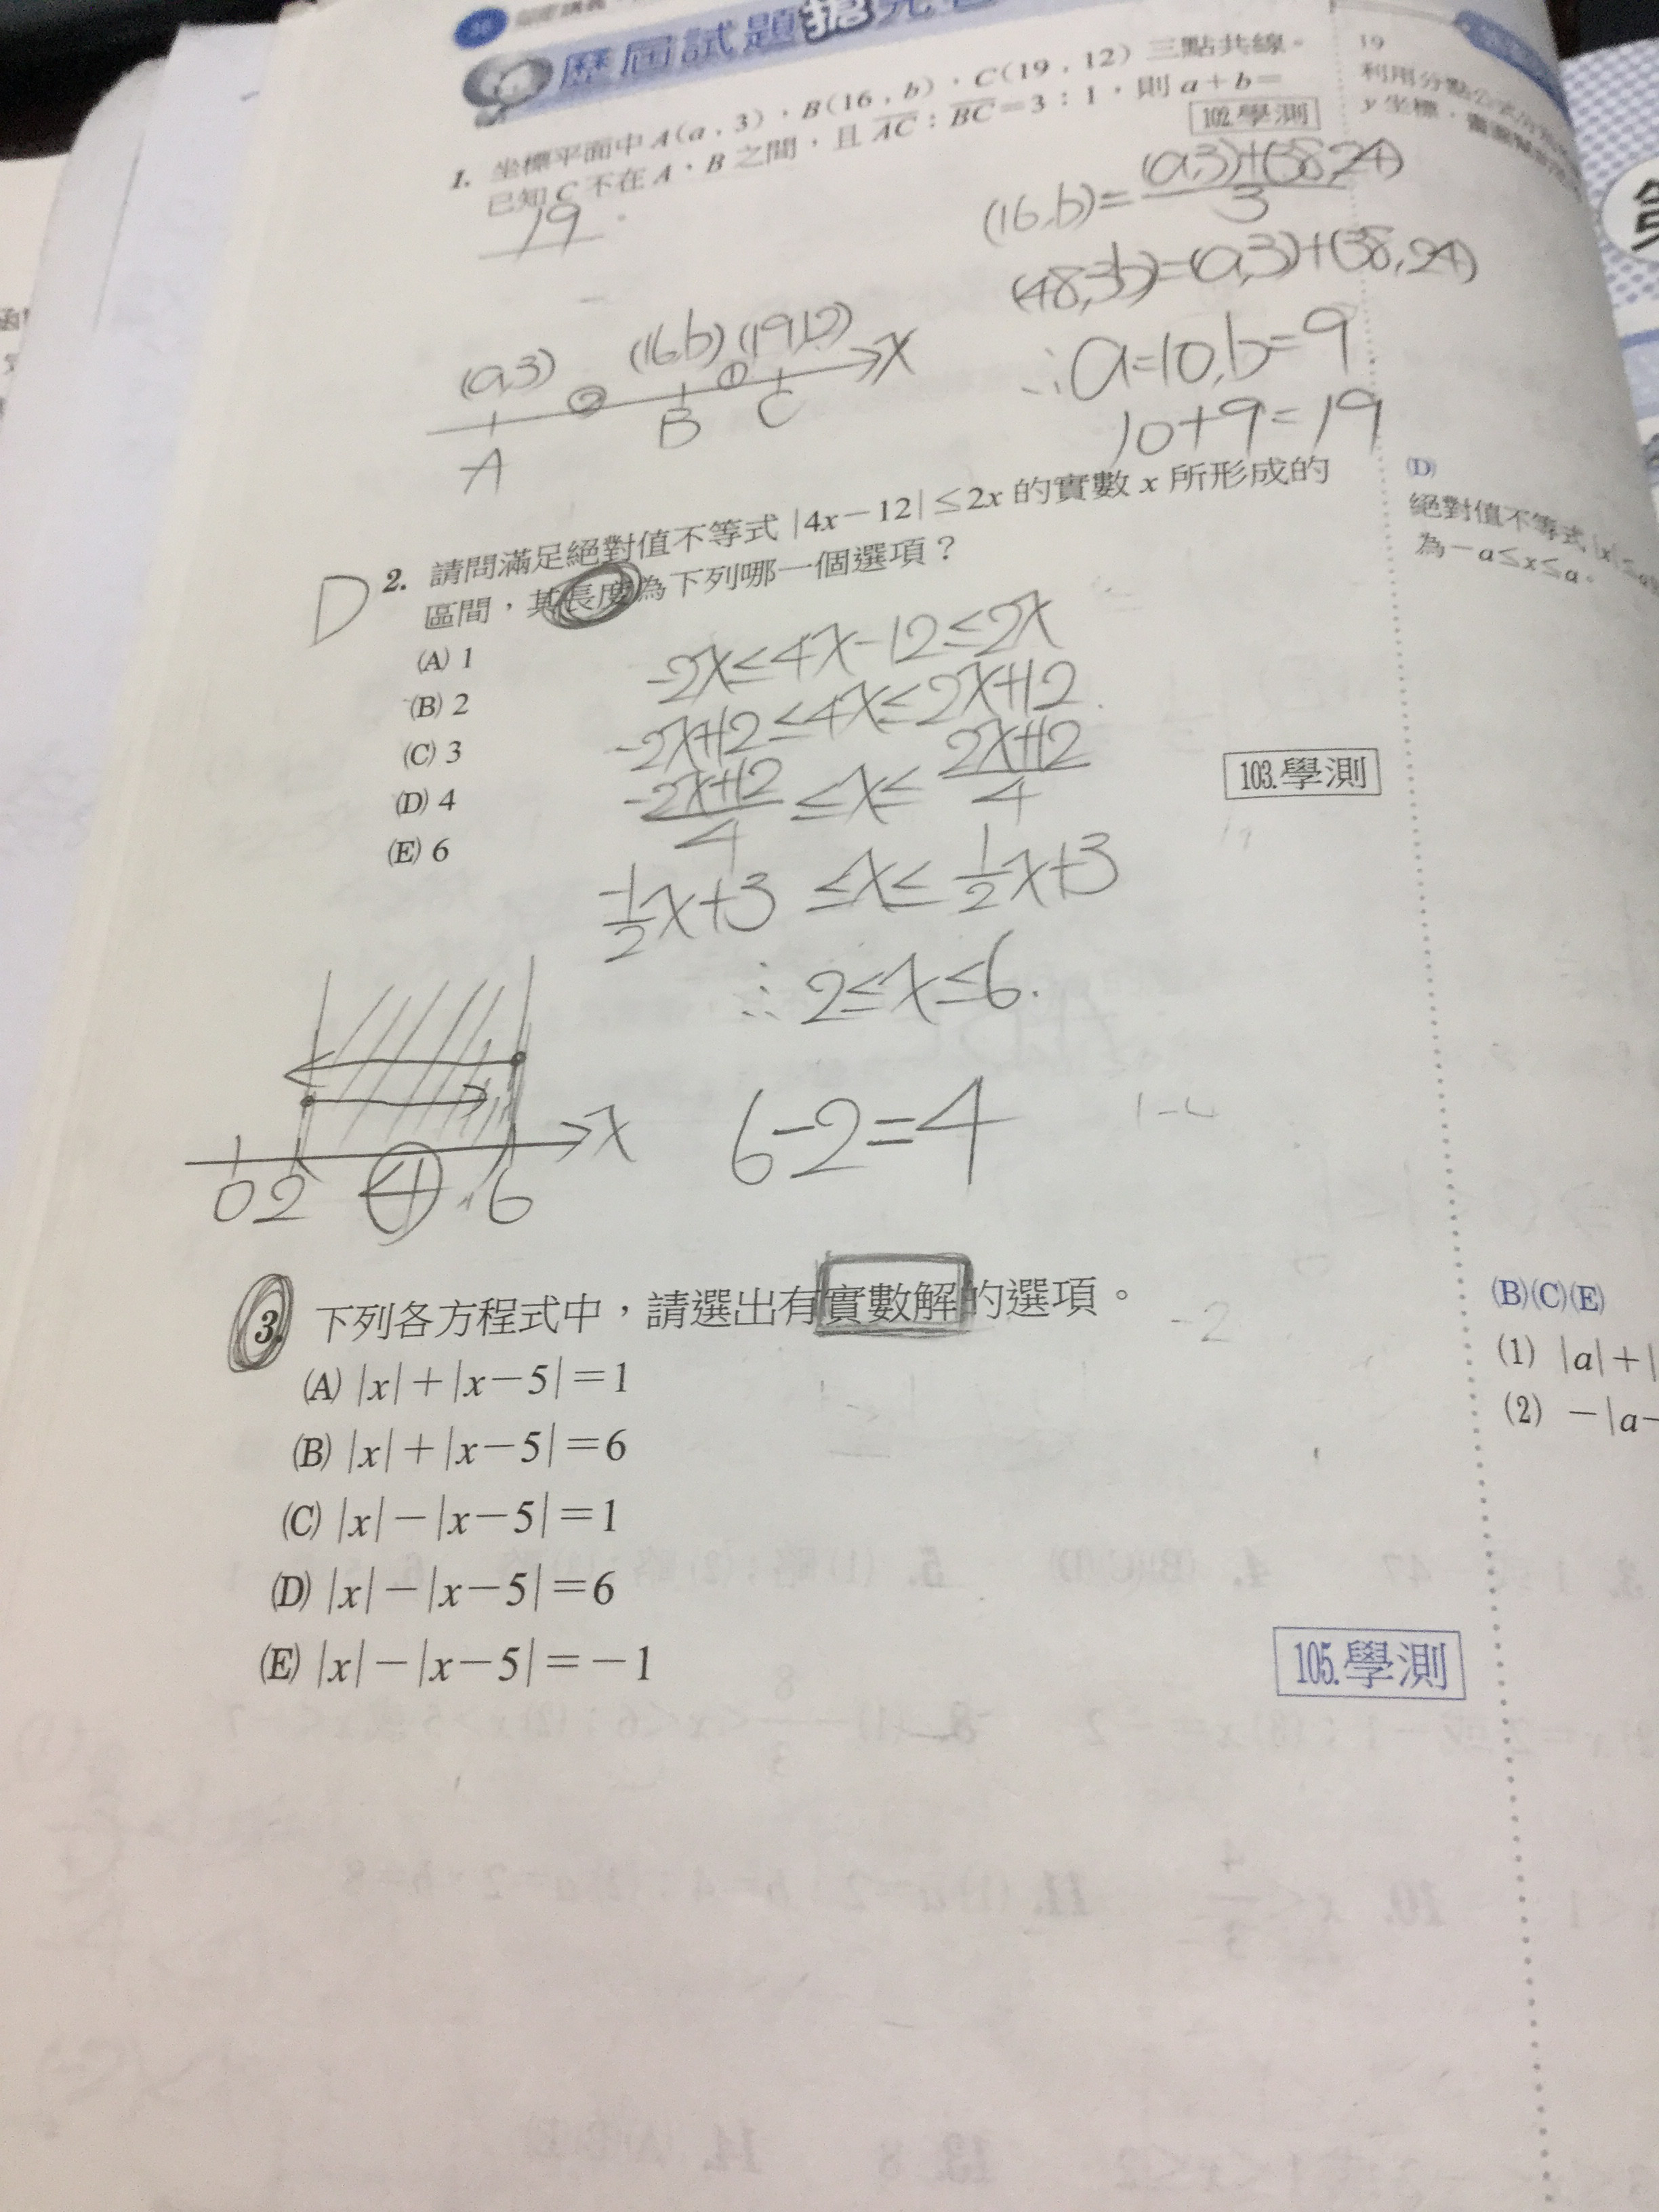 歷屆試題搶先看
1. 坐標平面中 A(a,3)、B(16,b)、C(19,12) 三點共線。
已知 C 不在 A、B 之間,且 AC:BC=3:1,則 a+b=
19。
102.學測
(16,b)=(a,3)+(38,24)/3
(48,3b)=(a,3)+(38,24)
∴a=10,b=9
10+9=19
(a,3) ② (16,b) ① (19,12) x
A B C
D
2. 請問滿足絕對值不等式 |4x-12|≤2x 的實數 x 所形成的
區間,其長度為下列哪一個選項?
(A) 1
(B) 2
(C) 3
(D) 4
(E) 6
103.學測
-2x≤4x-12≤2x
-2x+12≤4x≤2x+12
-2x+12/4≤x≤2x+12/4
-1/2x+3≤x≤1/2x+3
∴2≤x≤6.
6-2=4
0 2 ④ 6 x
3. 下列各方程式中,請選出有實數解的選項。
(A) |x|+|x-5|=1
(B) |x|+|x-5|=6
(C) |x|-|x-5|=1
(D) |x|-|x-5|=6
(E) |x|-|x-5|=-1
105.學測
19
利用分點公式
y 坐標,
(D)
絕對值不等式 |x|≤a
為-a≤x≤a。
(B)(C)(E)
(1) |a|+|
(2) -|a-